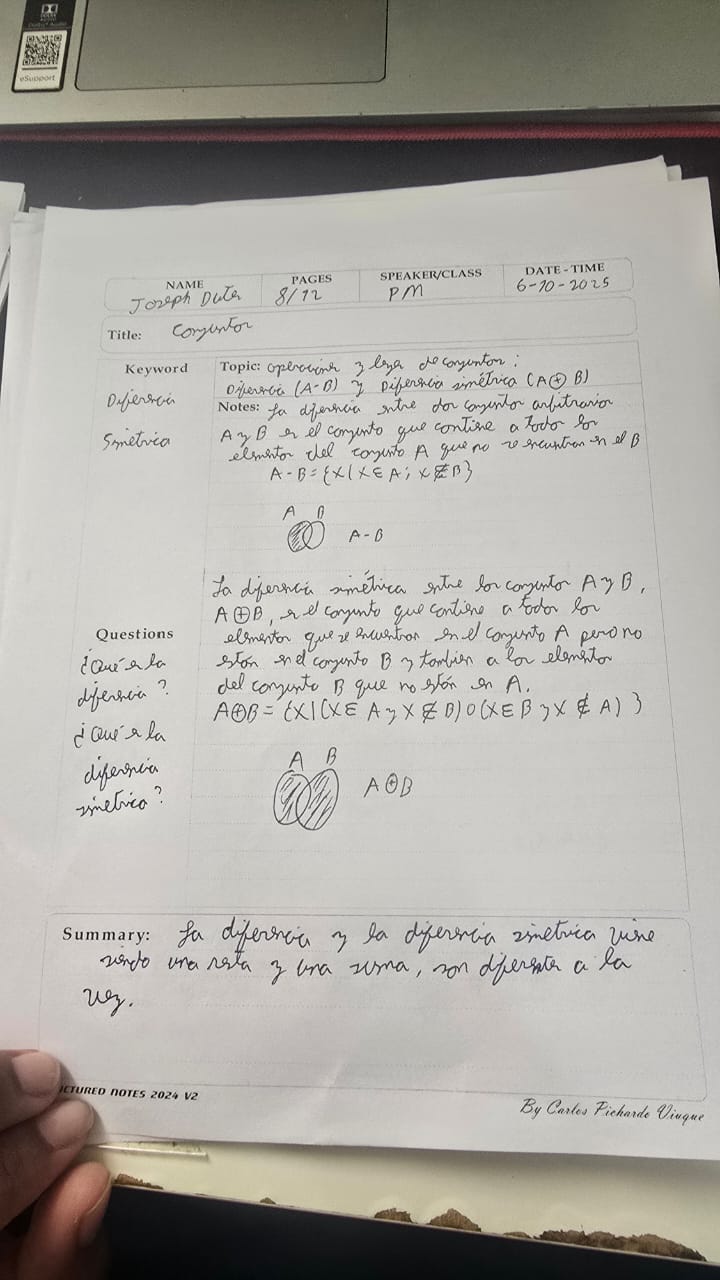 DOLBY
eSupport
NAME
Joseph Duter
PAGES
8/12
SPEAKER/CLASS
PM
DATE - TIME
6-10-2025
Title: Conjuntos
Keyword
Diferencia
Simétrica
Topic: operaciones y leyes de conjuntos:
Diferencia (A-B) y Diferencia simétrica (A⊕B)
Notes: La diferencia entre dos conjuntos arbitrarios
A y B es el conjunto que contiene a todos los
elementos del conjunto A que no se encuentran en el B
A-B={X|X∈A; X∉B}
A B
A-B
La diferencia simétrica entre los conjuntos A y B,
A⊕B, es el conjunto que contiene a todos los
elementos que se encuentran en el conjunto A pero no
están en el conjunto B y tambien a los elementos
del conjunto B que no están en A.
A⊕B={X|(X∈A y X∉B) o (X∈B y X∉A)}
A B
A⊕B
Questions
¿Qué es la
diferencia?
¿Qué es la
diferencia
simetrica?
Summary: La diferencia y la diferencia simetrica viene
siendo una resta y una suma, son diferentes a la
vez.
CTURED NOTES 2024 V2
By Carlos Pichardo Viuque